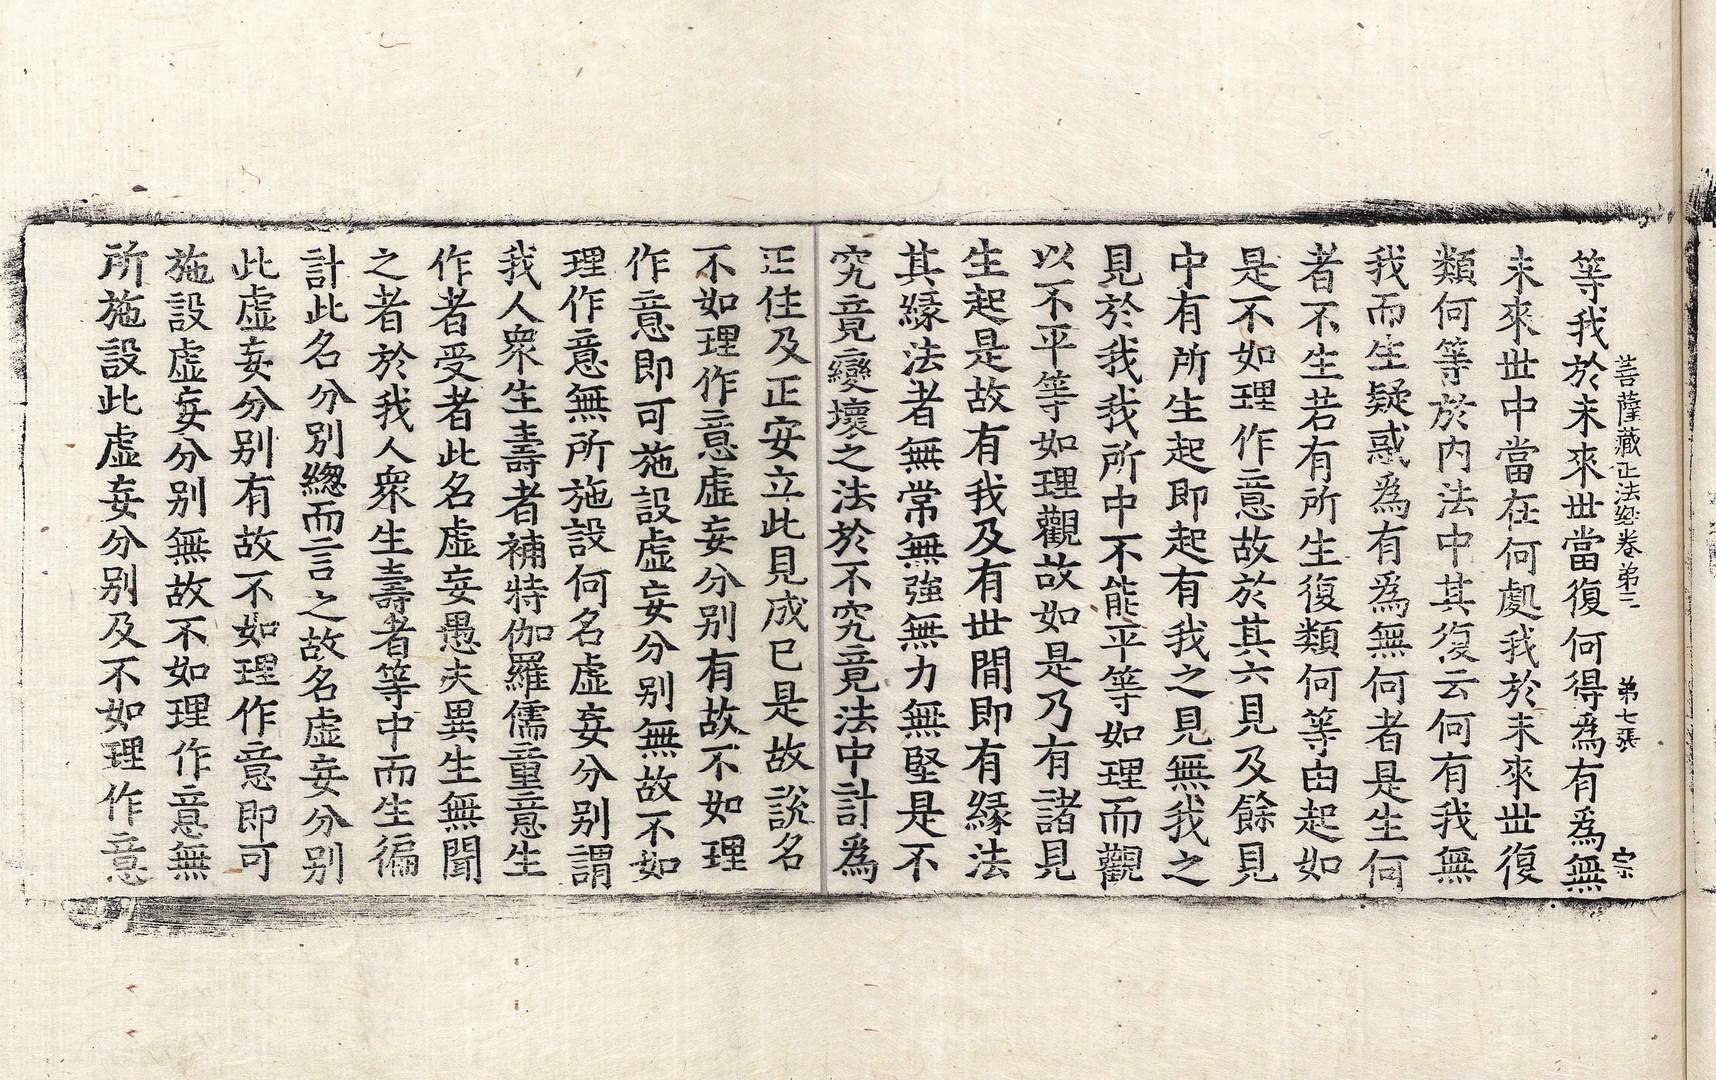 菩薩藏正法經卷第三 第七張 宗
等我於未來世當復何得為有為無
未來世中當在何處我於未來世復
類何等於內法中其復云何有我無
我而生疑惑為有為無何者是生何
者不生若有所生復類何等由起如
是不如理作意故於其六見及餘見
中有所生起即起有我之見無我之
見於我我所中不能平等如理而觀
以不平等如理觀故如是乃有諸見
生起是故有我及有世間即有緣法
其緣法者無常無強無力無堅是不
究竟變壞之法於不究竟法中計為
正住及正安立此見成已是故說名
不如理作意虛妄分別有故不如理
作意即可施設虛妄分別無故不如
理作意無所施設何名虛妄分別謂
我人衆生壽者補特伽羅儒童意生
作者受者此名虛妄愚夫異生無聞
之者於我人衆生壽者等中而生徧
計此名分別緫而言之故名虛妄分別
此虛妄分別有故不如理作意即可
施設虛妄分別無故不如理作意無
所施設此虛妄分別及不如理作意